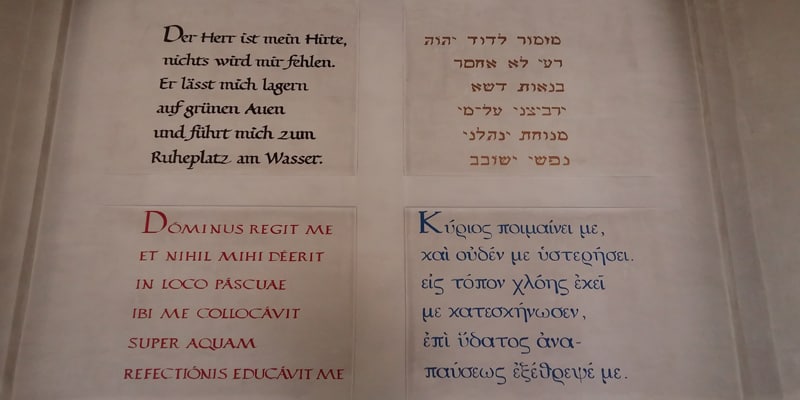 Der Herr ist mein Hirte,
nichts wird mir fehlen.
Er lässt mich lagern
auf grünen Auen
und führt mich zum
Ruheplatz am Wasser.
מזמור לדוד יהוה
רעי לא אחסר
בנאות דשא
ירביצני על־מי
מנוחת ינהלני
נפשי ישובב
DÓMINUS REGIT ME
ET NIHIL MIHI DÉERIT
IN LOCO PÁSCUAE
IBI ME COLLOCÁVIT
SUPER AQUAM
REFECTIÓNIS EDUCÁVIT ME
Κύριος ποιμαίνει με,
καὶ οὐδέν με ὑστερήσει.
εἰς τόπον χλόης ἐκεῖ
με κατεσκήνωσεν,
ἐπὶ ὕδατος ἀνα-
παύσεως ἐξέθρεψέ με.